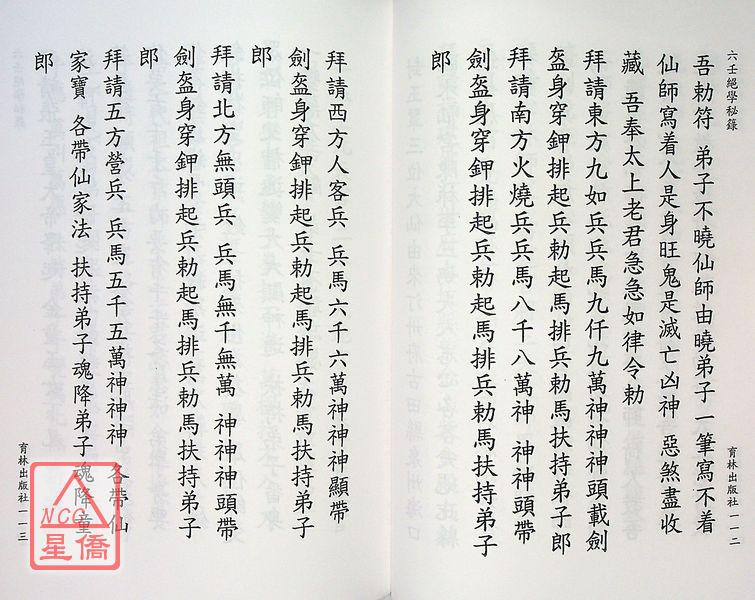 六壬絕學秘錄
吾勅符 弟子不曉仙師由曉弟子一筆寫不着
仙師寫着人是身旺鬼是滅亡凶神 惡煞盡收
藏 吾奉太上老君急急如律令勅
拜請東方九如兵兵馬九仟九萬神神神頭載劍
盔身穿鉀排起兵勅起馬排兵勅馬扶持弟子郎
拜請南方火燒兵兵馬八千八萬神 神神頭帶
劍盔身穿鉀排起兵勅起馬排兵勅馬扶持弟子
郎
育林出版社 一一二
拜請西方人客兵 兵馬六千六萬神神神顯帶
劍盔身穿鉀排起兵勅起馬排兵勅馬扶持弟子
郎
拜請北方無頭兵 兵馬無千無萬 神神神頭帶
劍盔身穿鉀排起兵勅起馬排兵勅馬扶持弟子
郎
拜請五方營兵 兵馬五千五萬神神神 各帶仙
家寶 各帶仙家法 扶持弟子魂降弟子魂降童
郎
育林出版社 一一三
NCC
星僑